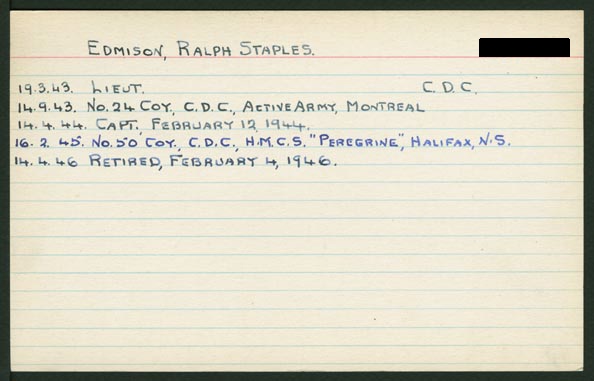 EDMISON, RALPH STAPLES.
19.3.43. LIEUT. C.D.C.
14.9.43. NO.24 COY, C.D.C., ACTIVE ARMY, MONTREAL
14.4.44. CAPT. FEBRUARY 12, 1944.
16.2.45. NO.50 COY., C.D.C., H.M.C.S. "PEREGRINE", HALIFAX, N.S.
14.4.46 RETIRED, FEBRUARY 4, 1946.